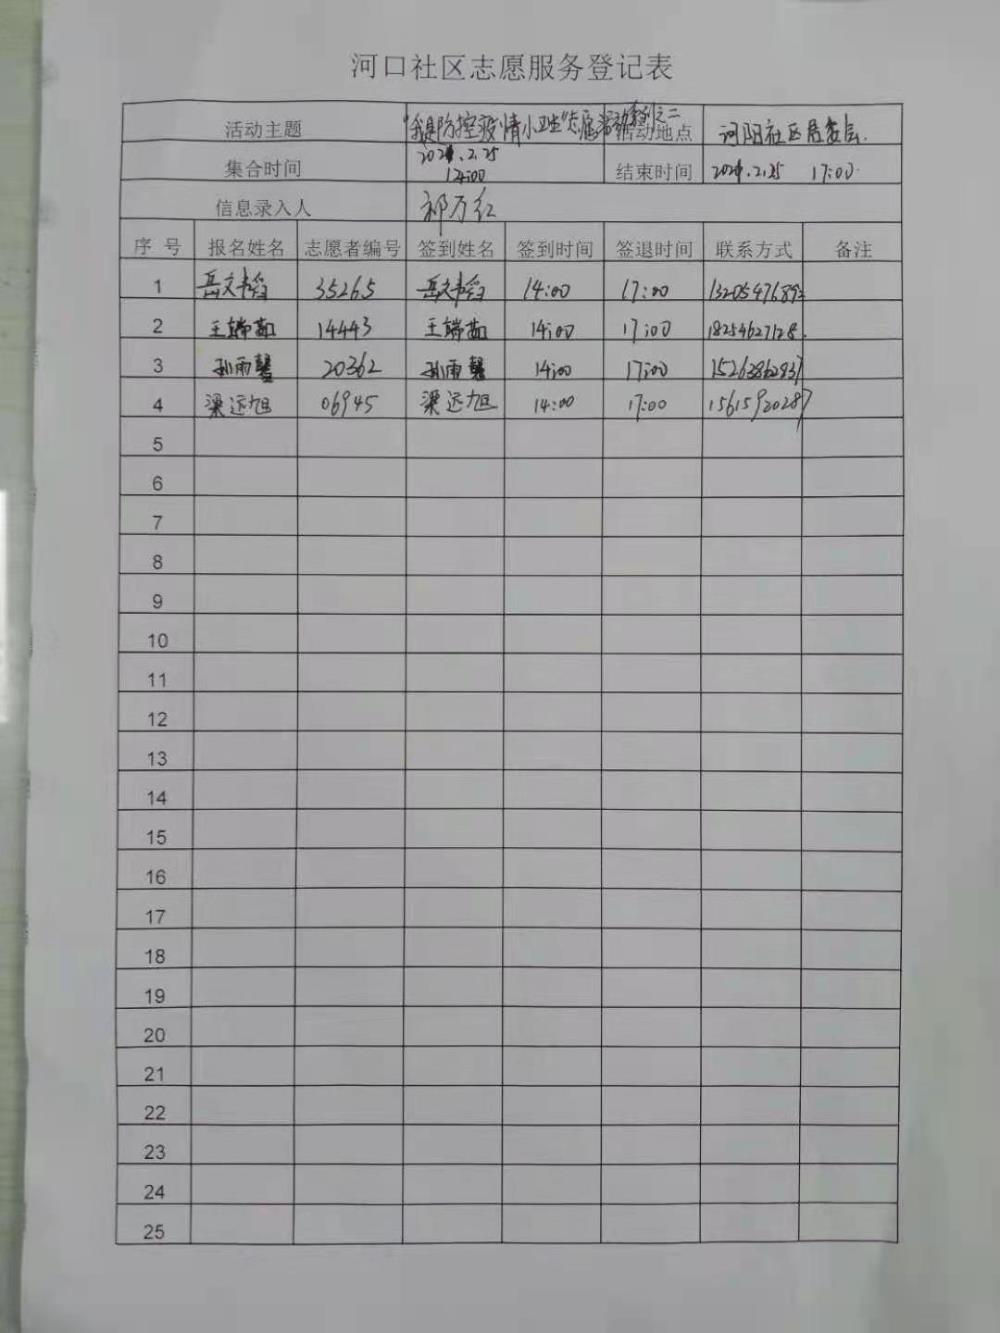 河口社区志愿服务登记表
活动主题 "我是防控疫情小卫生"志愿活动系列之二 活动地点 河阳社区居委会.
集合时间 2021.2.25 14:00 结束时间 2021.2.25 17:00
信息录入人 祁万红
序 号 报名姓名 志愿者编号 签到姓名 签到时间 签退时间 联系方式 备注
1 岳文韬 35265 岳文韬 14:00 17:00
2 王端茹 14443 王端茹 14:00 17:00 18254627128.
3 孙雨馨 20362 孙雨馨 14:00 17:00 15263862937
4 梁远旭 06945 梁远旭 14:00 17:00 15615920287
5
6
7
8
9
10
11
12
13
14
15
16
17
18
19
20
21
22
23
24
25